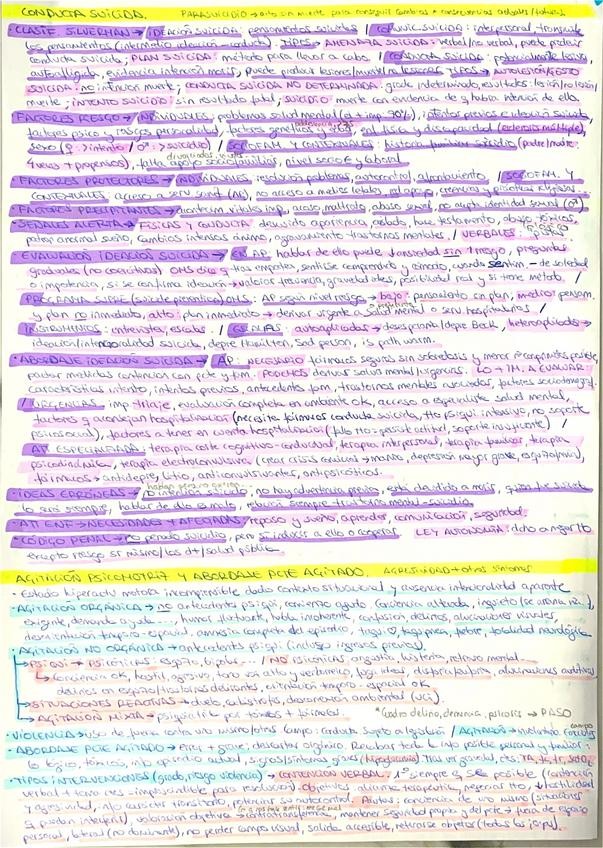 CONDUCTA SUICIDA. PARASUICIDIO → acto sin muerte para conseguir cambios
· CLASIF. SILVERMAN → IDEACIÓN SUICIDA: pensamientos suicidas / COMUNIC. SUICIDA: interpersonal, transmite
los pensamientos (intermedio ideación-conducta). TIPOS → AMENAZA SUICIDA: verbal/no verbal, puede predecir
conducta suicida; PLAN SUICIDA: método para llevar a cabo. / CONDUCTA SUICIDA: potencialmente lesiva,
autoinfligida, evidencia intención morir, puede producir lesiones/muerte/no lesiones TIPOS → AUTOLESIÓN/GESTO
SUICIDA: no intención muerte; CONDUCTA SUICIDA NO DETERMINADA: grado indeterminado, resultados: lesión/no lesión/
muerte; INTENTO SUICIDIO: sin resultado fatal; SUICIDIO: muerte con evidencia de q había intención de ello.
· FACTORES RIESGO → INDIVIDUALES: problemas salud mental (+ imp 90%), intentos previos e ideación suicida,
factores psico y rasgos personalidad, factores genéticos y enf. física y discapacidad (esclerosis múltiple),
sexo (♀ > intento / ♂ > suicidio) / SOCIOFAM. Y CONTEXTUALES: historia familiar suicidio (padre/madre
+ propensos), falta apoyo sociofamiliar, nivel socioec y laboral
· FACTORES PROTECTORES → INDIVIDUALES: resolución problemas, autocontrol, afrontamiento / SOCIOFAM. Y
CONTEXTUALES: acceso a serv sanit no acceso a medios letales, red apoyo, creencias y prácticas religiosas
· FACTORES PRECIPITANTES → acontecim vitales imp, acoso, maltrato, abuso sexual, no acepta identidad sexual
· SEÑALES ALERTA → FÍSICAS Y CONDUCTA: descuido apariencia, aislado, hace testamento, abuso tóxicos,
patrón anormal sueño, cambios intensos ánimo, agravamiento trastornos mentales. / VERBALES:
· EVALUACIÓN IDEACIÓN SUICIDA → EN AP: hablar de ello puede ↓ansiedad sin ↑riesgo, preguntas
graduales (no coercitivas) OMS tras empatía, sentirse comprendido y cómodo, cuando sentim. de soledad
o impotencia, si se confirma ideación → valorar frecuencia, gravedad ideas, posibilidad real y si tiene método /
PROGRAMA SUPRE (suicide prevention) OMS: AP según nivel riesgo → bajo: pensamiento sin plan, medio: pensam.
y plan no inmediato, alto: plan inmediato → derivar urgente a Salud mental o serv. hospitalarios /
INSTRUMENTOS: entrevista, escalas. / ESCALAS: autoaplicadas → desesperanza/depre Beck, heteroaplicadas →
ideación/intencionalidad suicida, depre Hamilton, Sad person, is path warm.
· ABORDAJE IDEACIÓN SUICIDA → AP: NECESARIO fármacos seguros sin sobredosis y menor nº comprimidos posible,
pactar medidas contención con pcte y fam. PODEMOS derivar salud mental/urgencias. LO + IM. A EVALUAR
características intento, intentos previos, antecedentes fam, trastornos mentales asociados, factores sociodemog.
/ URGENCIAS: imp triaje, evaluación completa en ambiente ok, acceso a especialista salud mental,
factores q aconsejan hospitalización (necesite fármacos conducta suicida, tto psiqui intensivo, no soporte
psicosocial), factores a tener en cuenta hospitalización (fallo tto= persiste actitud, soporte insuficiente) /
AT ESPECIALIZADA: terapia corte cognitivo-conductual, terapia interpersonal, terapia familiar, terapia
psicodinámica, terapia electroconvulsiva (crear crisis convulsiva → manía, depresión mayor grave, esquizofrenia),
fármacos → antidepre, litio, anticonvulsivantes, antipsicóticos.
· IDEAS ERRÓNEAS → no intención suicidio, no hay advertencia previa, está decidido a morir, quien fue suicida
lo será siempre, hablar de ello es malo, refleja siempre trastorno mental-suicidio
· AT/ ENF → NECESIDADES + AFECTADAS: reposo y sueño, aprender, comunicación, seguridad.
· CÓDIGO PENAL → no penado suicidio, pero sí inducir a ello o cooperar. LEY AUTONOMÍA: dcho a negar tto
excepto riesgo sí mismo/los d+/salud pública.
AGITACIÓN PSICOMOTRIZ Y ABORDAJE PCTE AGITADO. AGRESIVIDAD + otros síntomas
· Estado hiperactiv motora incomprensible dado contexto situacional y ausencia intencionalidad aparente
· AGITACIÓN ORGÁNICA → no antecedentes psiqui, comienzo agudo, conciencia alterada, inquieto
exigente, demanda ayuda ..., humor fluctuante, habla incoherente, confusión delirios, alucinaciones visuales,
desorientación temporo-espacial, amnesia completa del episodio, fiebre, focalidad neurológica
· AGITACIÓN NO ORGÁNICA → antecedentes psiqui (incluso ingresos previos).
→ PSIQUI → PSICÓTICAS: esquizo, bipolar... / NO PSICÓTICAS: angustia, histeria, retraso mental
→ conciencia ok, hostil, agresivo, tono voz alto y verborreico, fuga ideas, disforia/euforia, alucinaciones auditivas,
delirios en esquizo/trastornos delirantes, orientación temporo-espacial OK
→ SITUACIONES REACTIVAS → duelo, catástrofes, desarraigo ambiental (UCI)
→ AGITACIÓN MIXTA → psiquiátrica por tóxicos + fármacos. *Cuadro delirio, demencia, psicosis → PASO
· VIOLENCIA → uso de fuerza contra uno mismo/otros campo: conducta, sujeto a legislación / AGITADOS → involuntario
· ABORDAJE PCTE AGITADO → prior + grave: descartar orgánico. Recabar toda la info posible personal y familiar:
tóxicos, info episodio actual, signos/síntomas graves (hipoglucemia). Tras ver gravedad, ctes: TA, fc, fr, satO2
· TIPOS INTERVENCIONES (grado, riesgo violencia) → CONTENCIÓN VERBAL: 1º siempre q sea posible (contención
verbal + fármacos - imprescindible para resolución). Objetivos: alianza terapéutica, negociar tto, ↓ hostilidad
y agresividad, info carácter transitorio, potenciar su autocontrol. Pautas: conciencia de uno mismo (situaciones
q puedan interferir), valoración objetiva → contratransferencia, mantener seguridad propia y del pcte → fuera de espacio
personal, lateral (no dominante), no perder campo visual, salida accesible, retirarse objetos